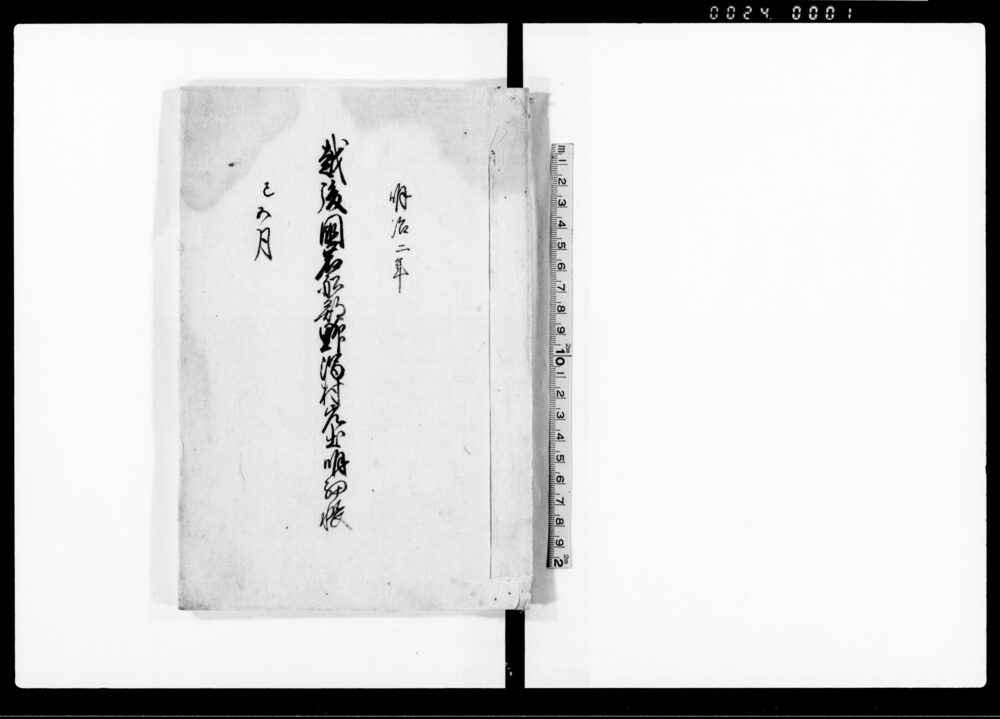 0024. 0001
明治二年
越後国岩船郡野潟村差出明細帳
巳五月
m 1 2 3 4 5 6 7 8 9 10 1 2 3 4 5 6 7 8 9 2